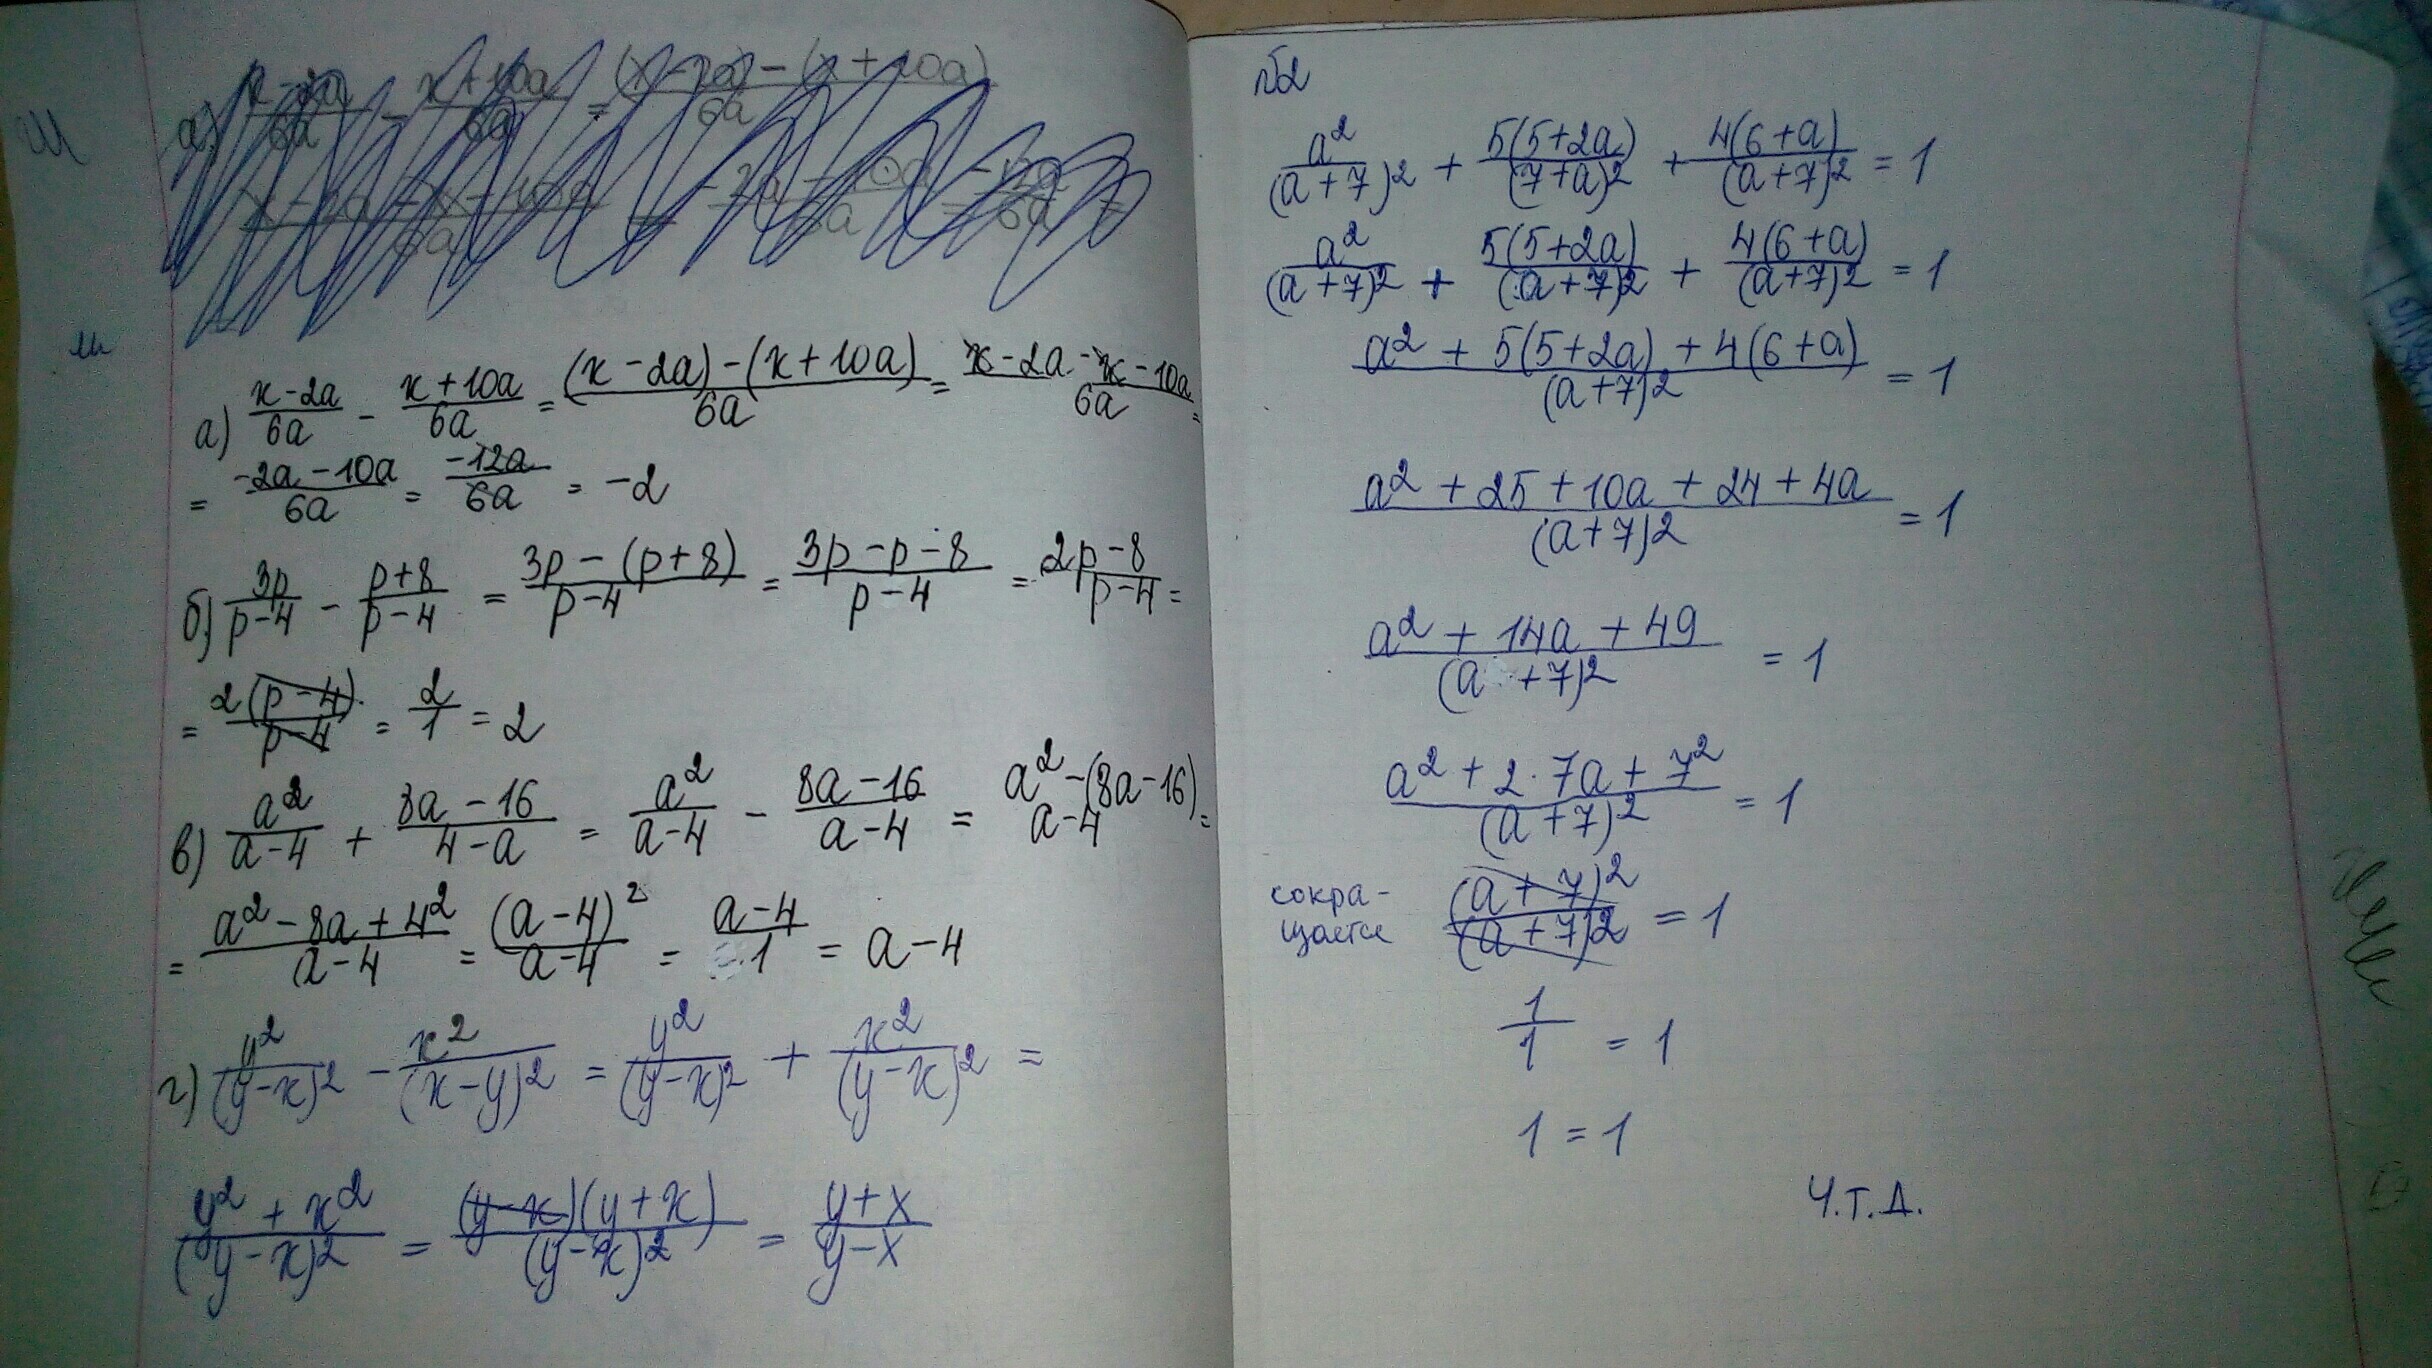 а) x-2a/6a - x+10a/6a = (x-2a)-(x+10a)/6a = x-2a-x-10a/6a =
= -2a-10a/6a = -12a/6a = -2
б) 3p/p-4 - p+8/p-4 = 3p-(p+8)/p-4 = 3p-p-8/p-4 = 2p-8/p-4 =
= 2(p-4)/p-4 = 2/1 = 2
в) a²/a-4 + 8a-16/4-a = a²/a-4 - 8a-16/a-4 = a²-(8a-16)/a-4 =
= a²-8a+4²/a-4 = (a-4)²/a-4 = a-4/1 = a-4
г) y²/(y-x)² - x²/(x-y)² = y²/(y-x)² + x²/(y-x)² =
y²+x²/(y-x)² = (y-x)(y+x)/(y-x)² = y+x/y-x
№2
a²/(a+7)² + 5(5+2a)/(7+a)² + 4(6+a)/(a+7)² = 1
a²/(a+7)² + 5(5+2a)/(a+7)² + 4(6+a)/(a+7)² = 1
a²+5(5+2a)+4(6+a)/(a+7)² = 1
a²+25+10a+24+4a/(a+7)² = 1
a²+14a+49/(a+7)² = 1
a²+2·7a+7²/(a+7)² = 1
сокра-
щается
(a+7)²/(a+7)² = 1
1/1 = 1
1 = 1
Ч.Т.Д.